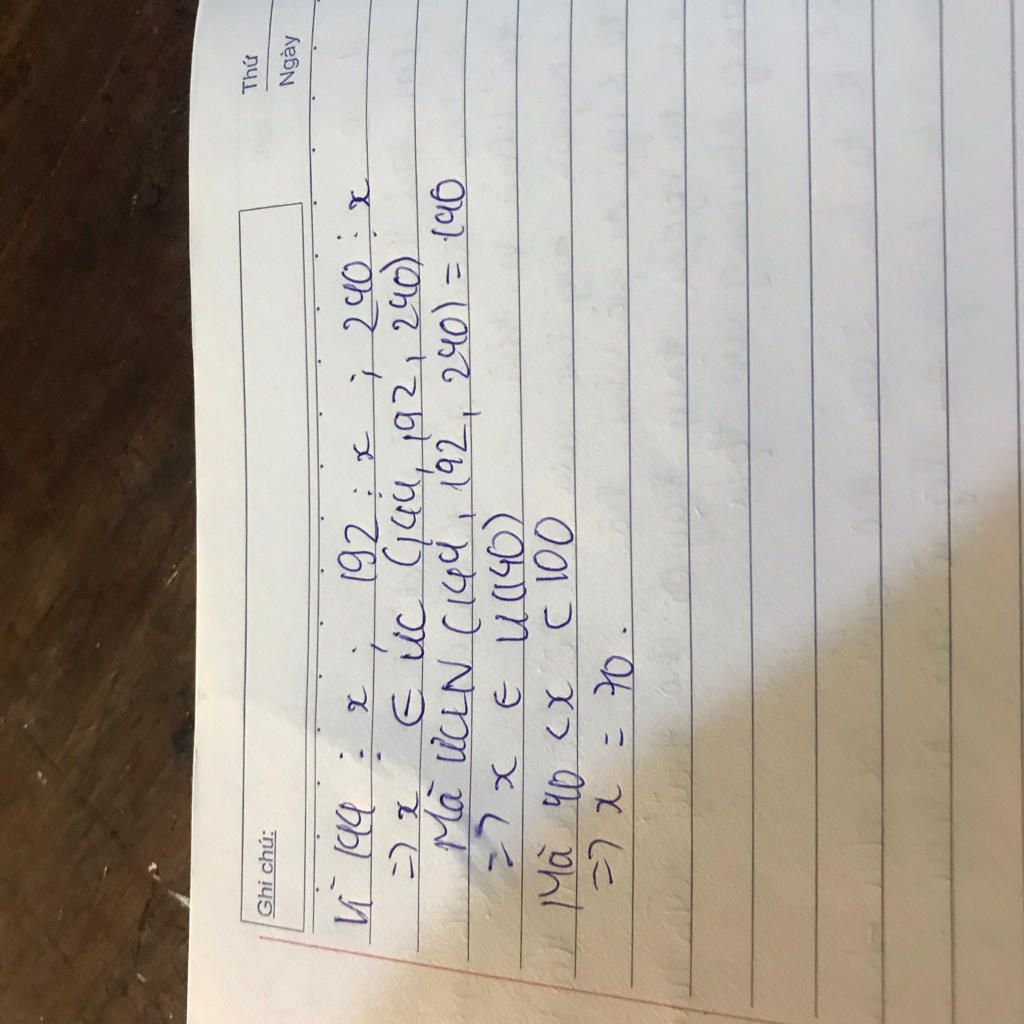 Thứ
Ngày
Ghi chú:
Vì 144 ⋮ x ; 192 ⋮ x ; 240 ⋮ x
=> x ∈ ƯC (144, 192, 240)
Mà ƯCLN (144, 192, 240) = 140
=> x ∈ Ư(140)
Mà 40 < x < 100
=> x = 70.